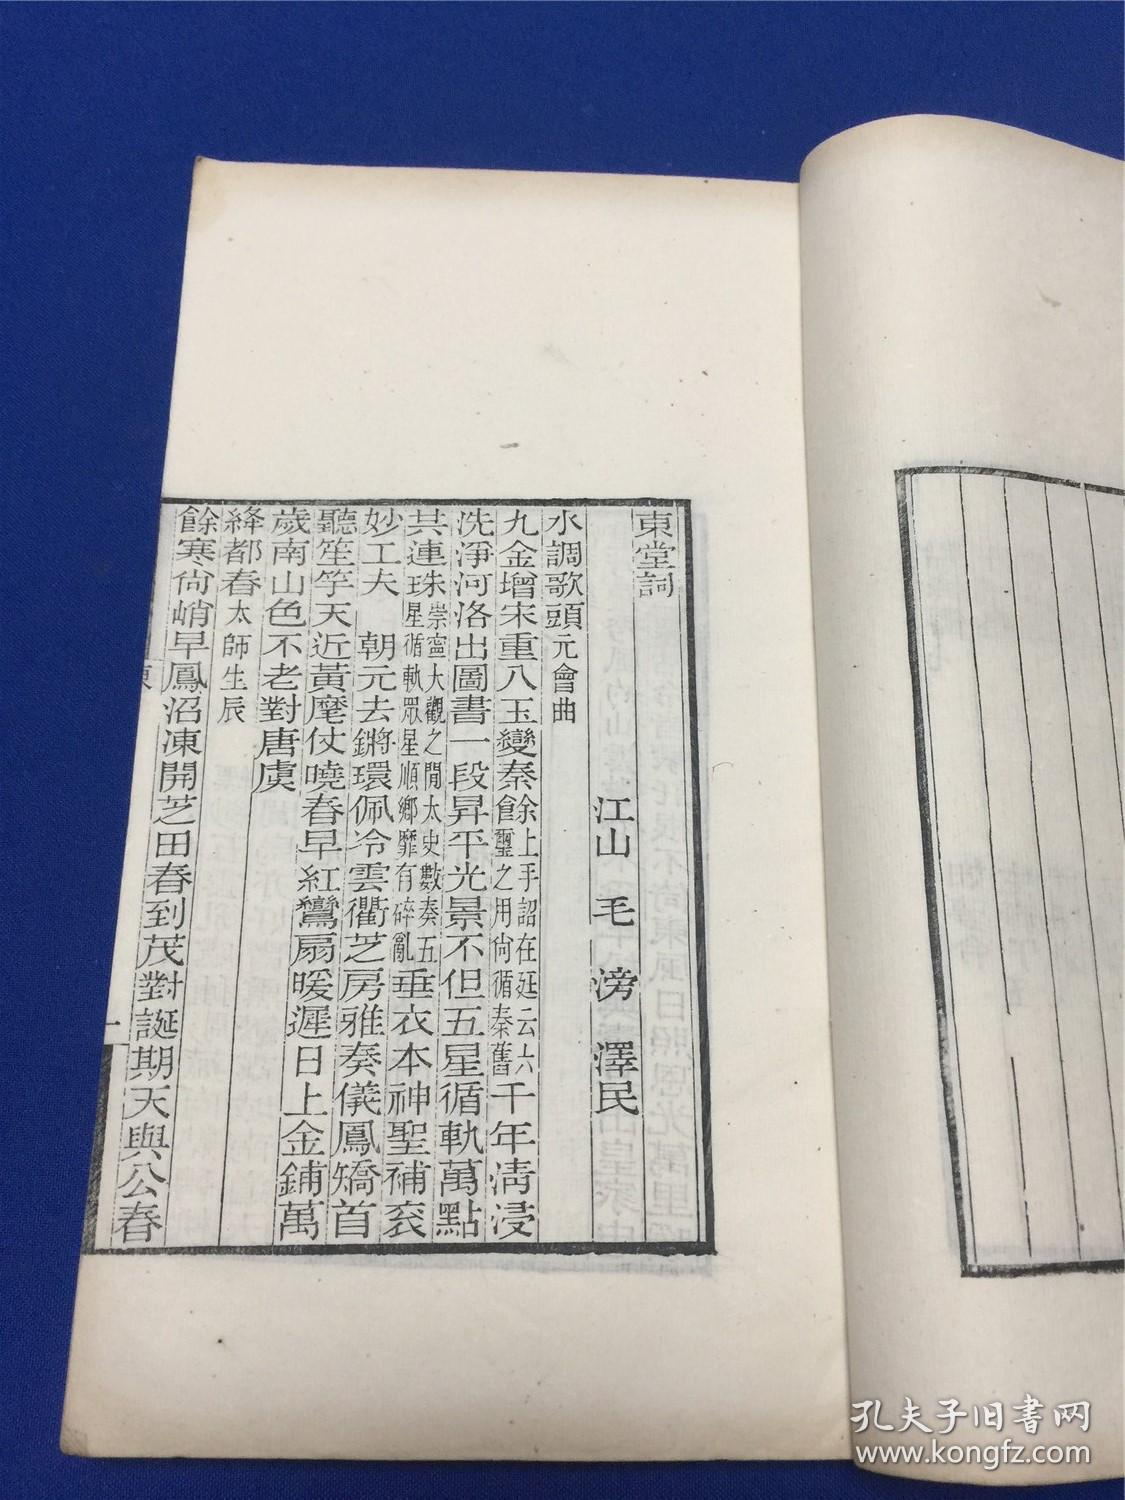 東堂詞
江山 毛 滂 澤民
水調歌頭元會曲
九金增宋重八玉變秦餘上手詔在延云六璽之用尙循秦舊千年淸浸
洗淨河洛出圖書一段昇平光景不但五星循軌萬點
共連珠崇寧大觀之閒太史數奏五星循軌眾星順鄉靡有碎亂垂衣本神聖補衮
妙工夫 朝元去鏘環佩冷雲衢芝房雅奏儀鳳矯首
聽笙竽天近黃麾仗曉春早紅鸞扇暖遲日上金鋪萬
歲南山色不老對唐虞
絳都春太師生辰
餘寒尙峭早鳳沼凍開芝田春到茂對誕期天與公春
東
一
孔夫子旧書网
www.kongfz.com